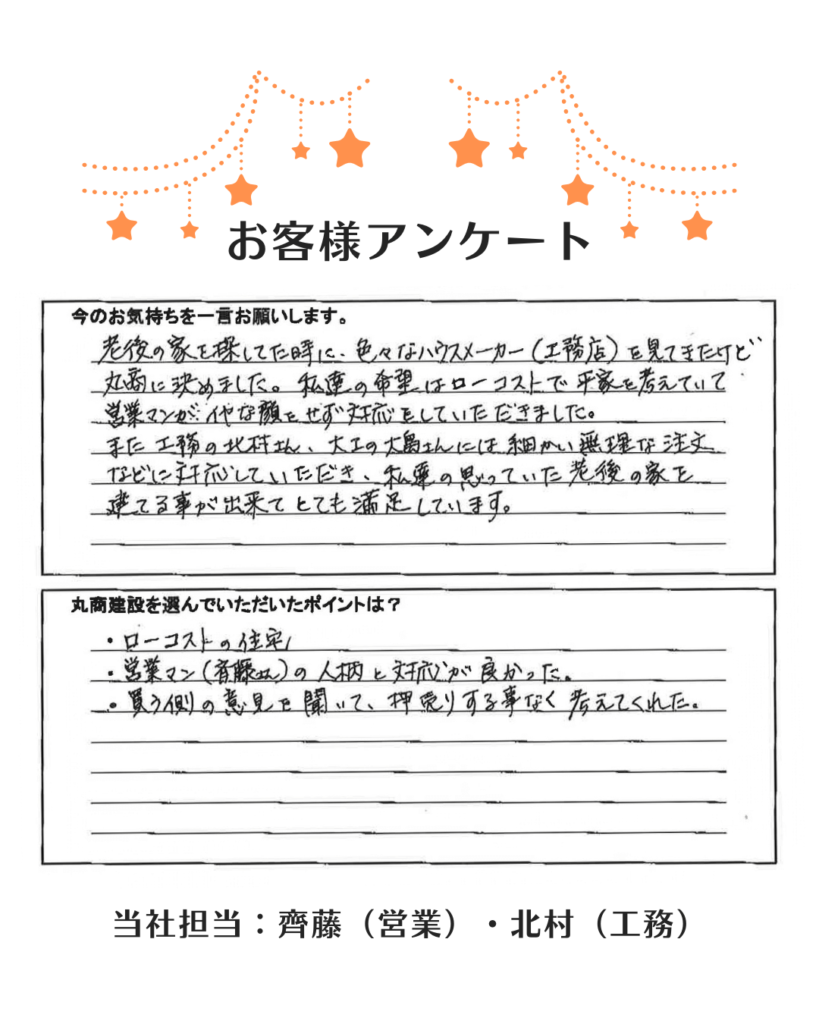 お客様アンケート
今のお気持ちを一言お願いします。
老後の家を探してた時に、色々なハウスメーカー(工務店)を見てきたけど
丸商に決めました。私達の希望はローコストで平家を考えていて
営業マンがイヤな顔をせず対応をしていただきました。
また工務の北村さん、大工の大島さんには細かい無理な注文
などに対応していただき、私達の思っていた老後の家を
建てる事が出来てとても満足しています。
丸商建設を選んでいただいたポイントは？
・ローコストの住宅
・営業マン(斉藤さん)の人柄と対応が良かった。
・買う側の意見を聞いて、押売りする事なく考えてくれた。
当社担当：齊藤（営業）・北村（工務）